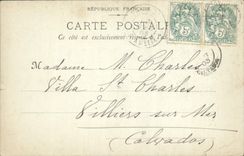 RÉPUBLIQUE FRANÇAISE
CARTE POSTALE
Ce côté est exclusivement réservé à l'adresse
Madame M. Charles
Villa St Charles
Villiers sur Mer
(Calvados)